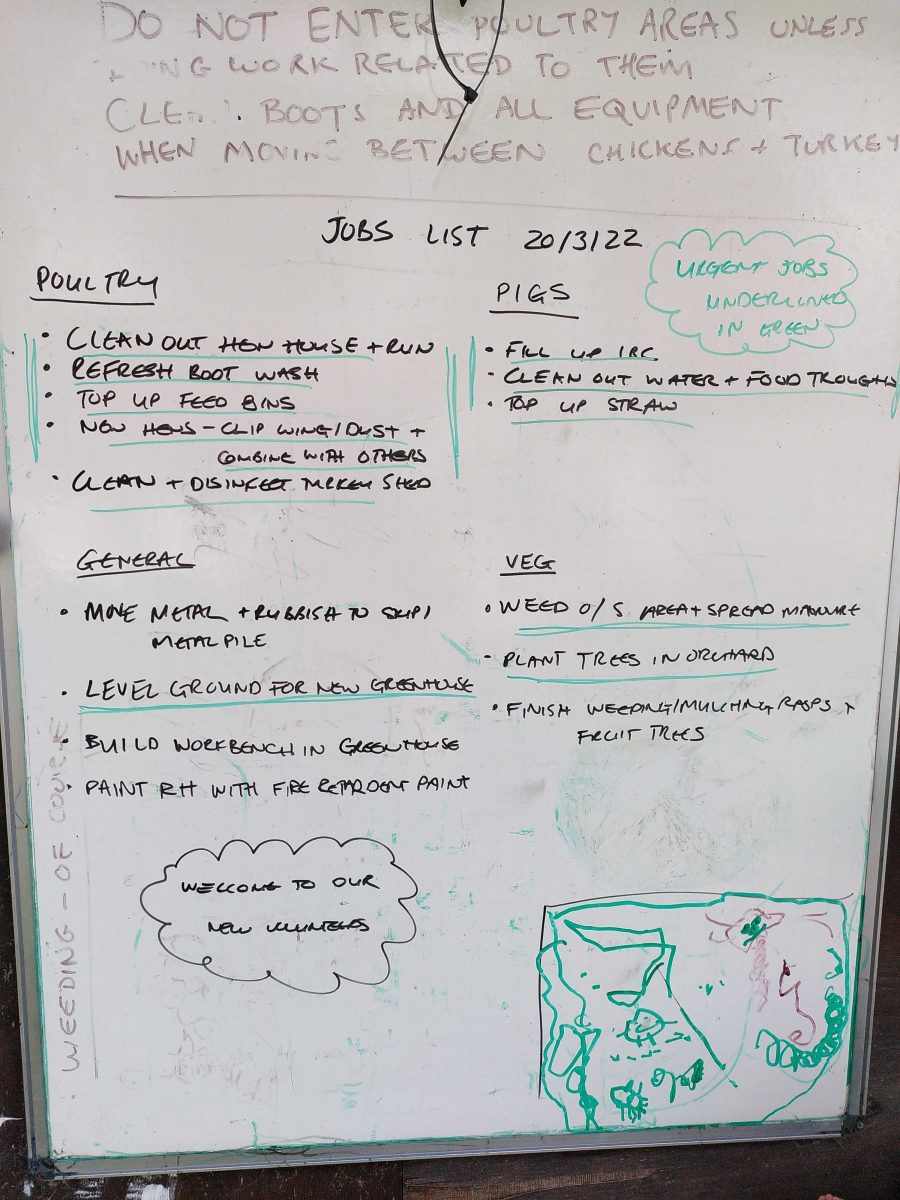 DO NOT ENTER POULTRY AREAS UNLESS
WORK RELATED TO THEM
BOOTS AND ALL EQUIPMENT
WHEN MOVING BETWEEN CHICKENS + TURKEY
JOBS LIST 20/3/22
URGENT JOBS
UNDERLINED
IN GREEN
POULTRY
• CLEAN OUT HEN HOUSE + RUN
• REFRESH BOOT WASH
• TOP UP FEED BINS
• NEW HENS - CLIP WING/DUST +
COMBINE WITH OTHERS
• CLEAN + DISINFECT TURKEY SHED
PIGS
• FILL UP IBC
• CLEAN OUT WATER + FOOD TROUGHS
• TOP UP STRAW
GENERAL
• MOVE METAL + RUBBISH TO SKIP/
METAL PILE
• LEVEL GROUND FOR NEW GREENHOUSE
• BUILD WORKBENCH IN GREENHOUSE
• PAINT RH WITH FIRE RETARDENT PAINT
VEG
• WEED O/S AREA + SPREAD MANURE
- PLANT TREES IN ORCHARD
• FINISH WEEDING/MULCHING RASPS +
FRUIT TREES
WEEDING - OF COURSE
WELCOME TO OUR
NEW VOLUNTEERS